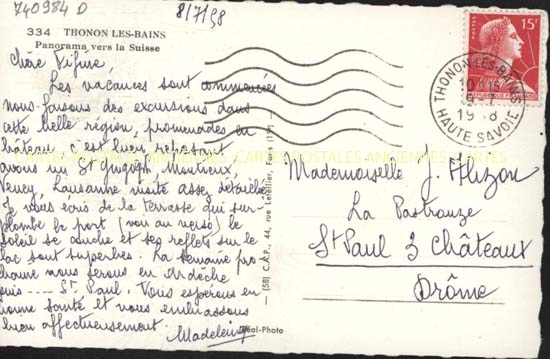 740984 D
8/7/58
334 THONON LES-BAINS
Panorama vers la Suisse
Chère Fifine,
Les vacances sont commencées
nous faisons des excursions dans
cette belle région, promenades en
château, c'est bien reposant
avons vu St Gingolph, Montreux,
Vevey, Lausanne visite assez détaillée
Je vous écris de la terrasse qui sur-
plombe le port (voir au verso) le
soleil se couche et ses reflets sur le
lac sont superbes. La semaine pro-
chaine nous serons en Ardèche
puis .... St. Paul. Vous espérons en
bonne santé et vous embrassons
bien affectueusement. Madeleine
(58) C.A.P., 44, rue Letellier, Paris (15e)
Réal-Photo
CARTES POSTALES ANCIENNES
POSTES
15F
THONON-LES-BAINS
HAUTE SAVOIE
Mademoiselle J. Aluzon
La
St Paul 3 Châteaux
Drôme